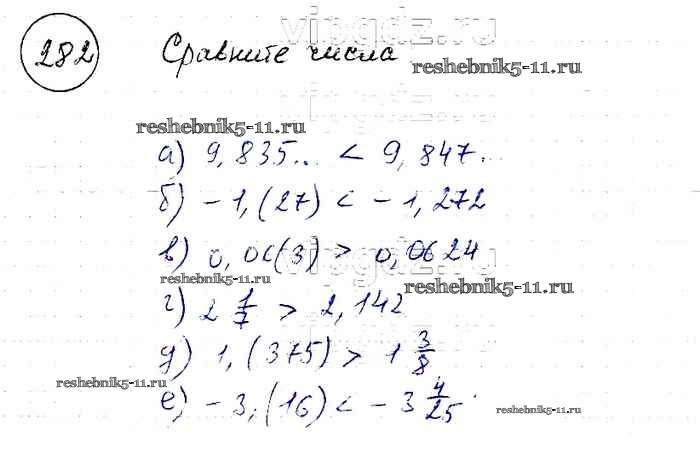 vipgdz.ru
282 Сравните числа
reshebnik5-11.ru
reshebnik5-11.ru
а) 9,835... < 9,847...
б) -1,(27) < -1,272
в) 0,06(3) > 0,0624
vipgdz.ru
reshebnik5-11.ru
reshebnik5-11.ru
г) 2 1/7 > 2,142
д) 1,(375) > 1 3/8
reshebnik5-11.ru
е) -3,(16) < -3 4/25
reshebnik5-11.ru